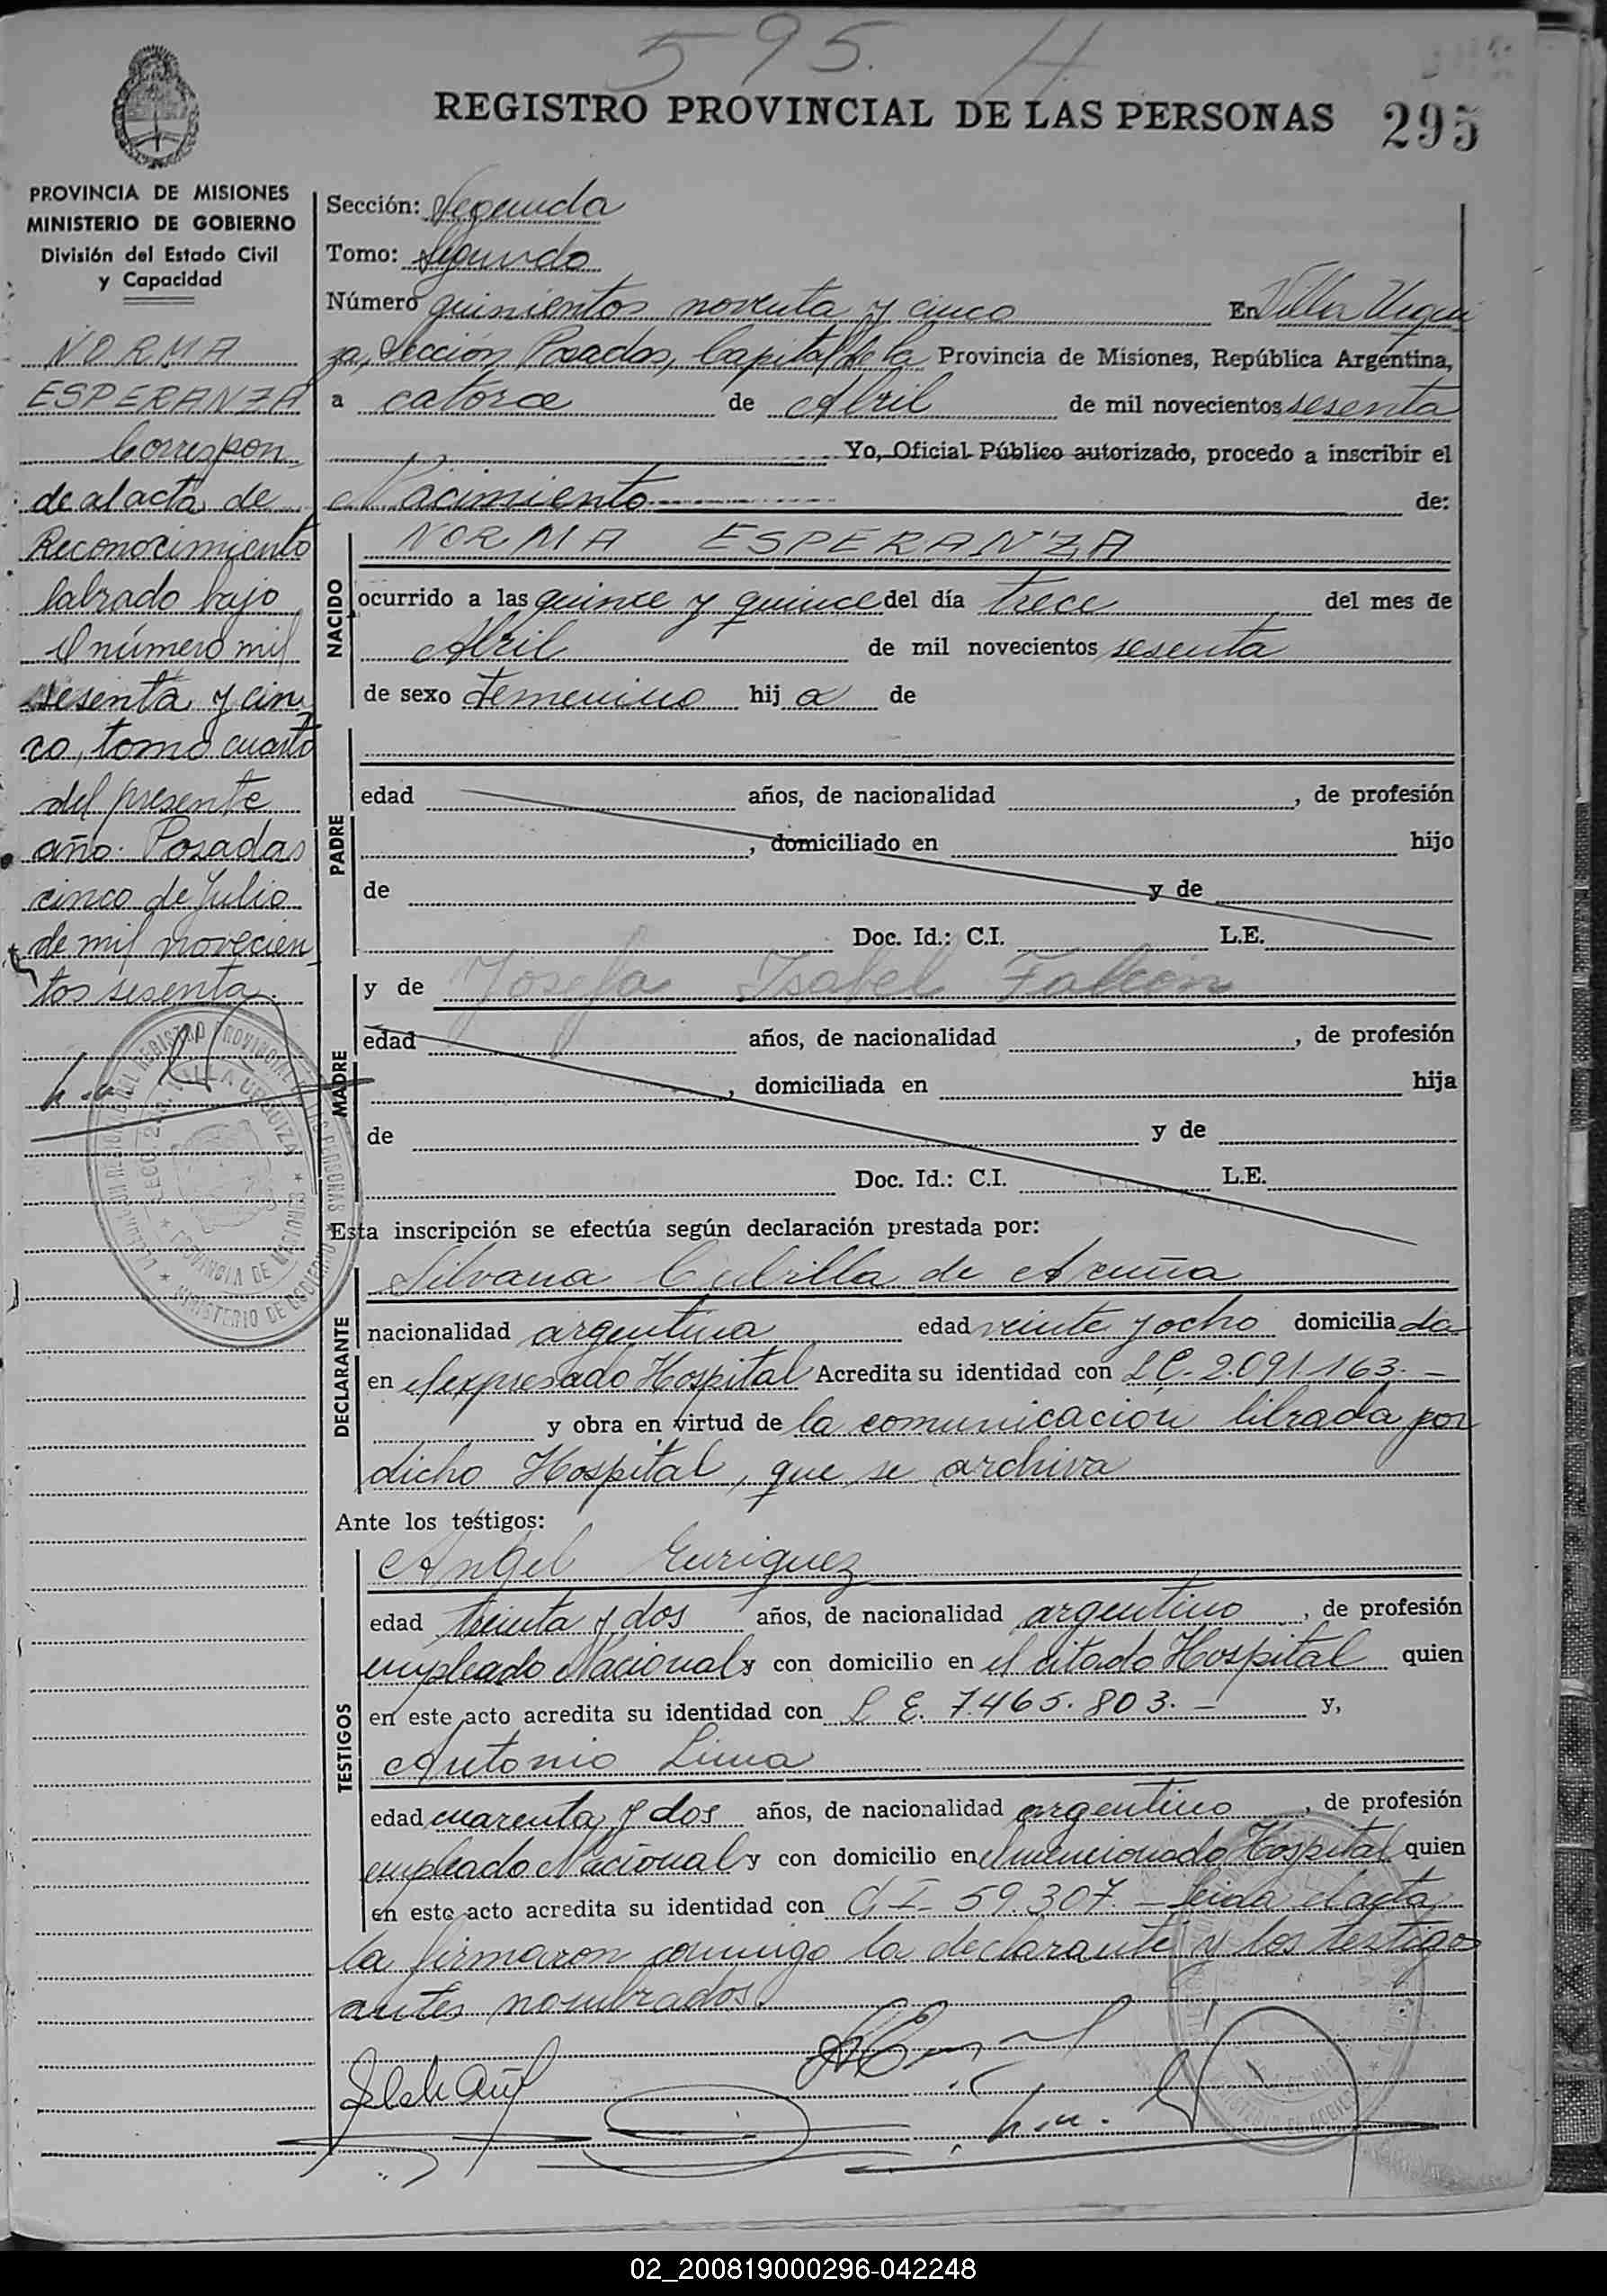 595. H
REGISTRO PROVINCIAL DE LAS PERSONAS 295
PROVINCIA DE MISIONES
MINISTERIO DE GOBIERNO
División del Estado Civil
y Capacidad
NORMA
ESPERANZA
Correspon
de al acta de
Reconocimiento
labrado bajo
el número mil
sesenta y cin
co, tomo cuarto
del presente
año. Posadas
cinco de Julio
de mil novecien
tos sesenta.
Sección: Segunda
Tomo: Segundo
Número quinientos noventa y cinco En Villa Urqui
za, Sección Posadas, Capital de la Provincia de Misiones, República Argentina,
a catorce de Abril de mil novecientos sesenta
Yo, Oficial Público autorizado, procedo a inscribir el
Nacimiento de:
NACIDO
NORMA ESPERANZA
ocurrido a las quince y quince del día trece del mes de
Abril de mil novecientos sesenta
de sexo femenino hij a de
PADRE
edad años, de nacionalidad , de profesión
, domiciliado en hijo
de y de
Doc. Id.: C.I. L.E.
MADRE
y de Josefa Isabel Falcón
edad años, de nacionalidad , de profesión
, domiciliada en hija
de y de
Doc. Id.: C.I. L.E.
Esta inscripción se efectúa según declaración prestada por:
DECLARANTE
Silvana Cubilla de Acuña
nacionalidad argentina edad veinte y ocho domicilia da
en el expresado Hospital Acredita su identidad con L C. 2.091.163. —
y obra en virtud de la comunicación librada por
dicho Hospital, que se archiva
Ante los testigos:
TESTIGOS
Angel Enriquez
edad treinta y dos años, de nacionalidad argentino , de profesión
empleado Nacional y con domicilio en el citado Hospital quien
en este acto acredita su identidad con L E. 7.465.803. — y,
Antonio Lima
edad cuarenta y dos años, de nacionalidad argentino , de profesión
empleado Nacional y con domicilio en el mencionado Hospital quien
en este acto acredita su identidad con C. I. 59.307. — Leida el acta
la firmaron conmigo la declarante y los testigos
antes nombrados.
02_200819000296-042248